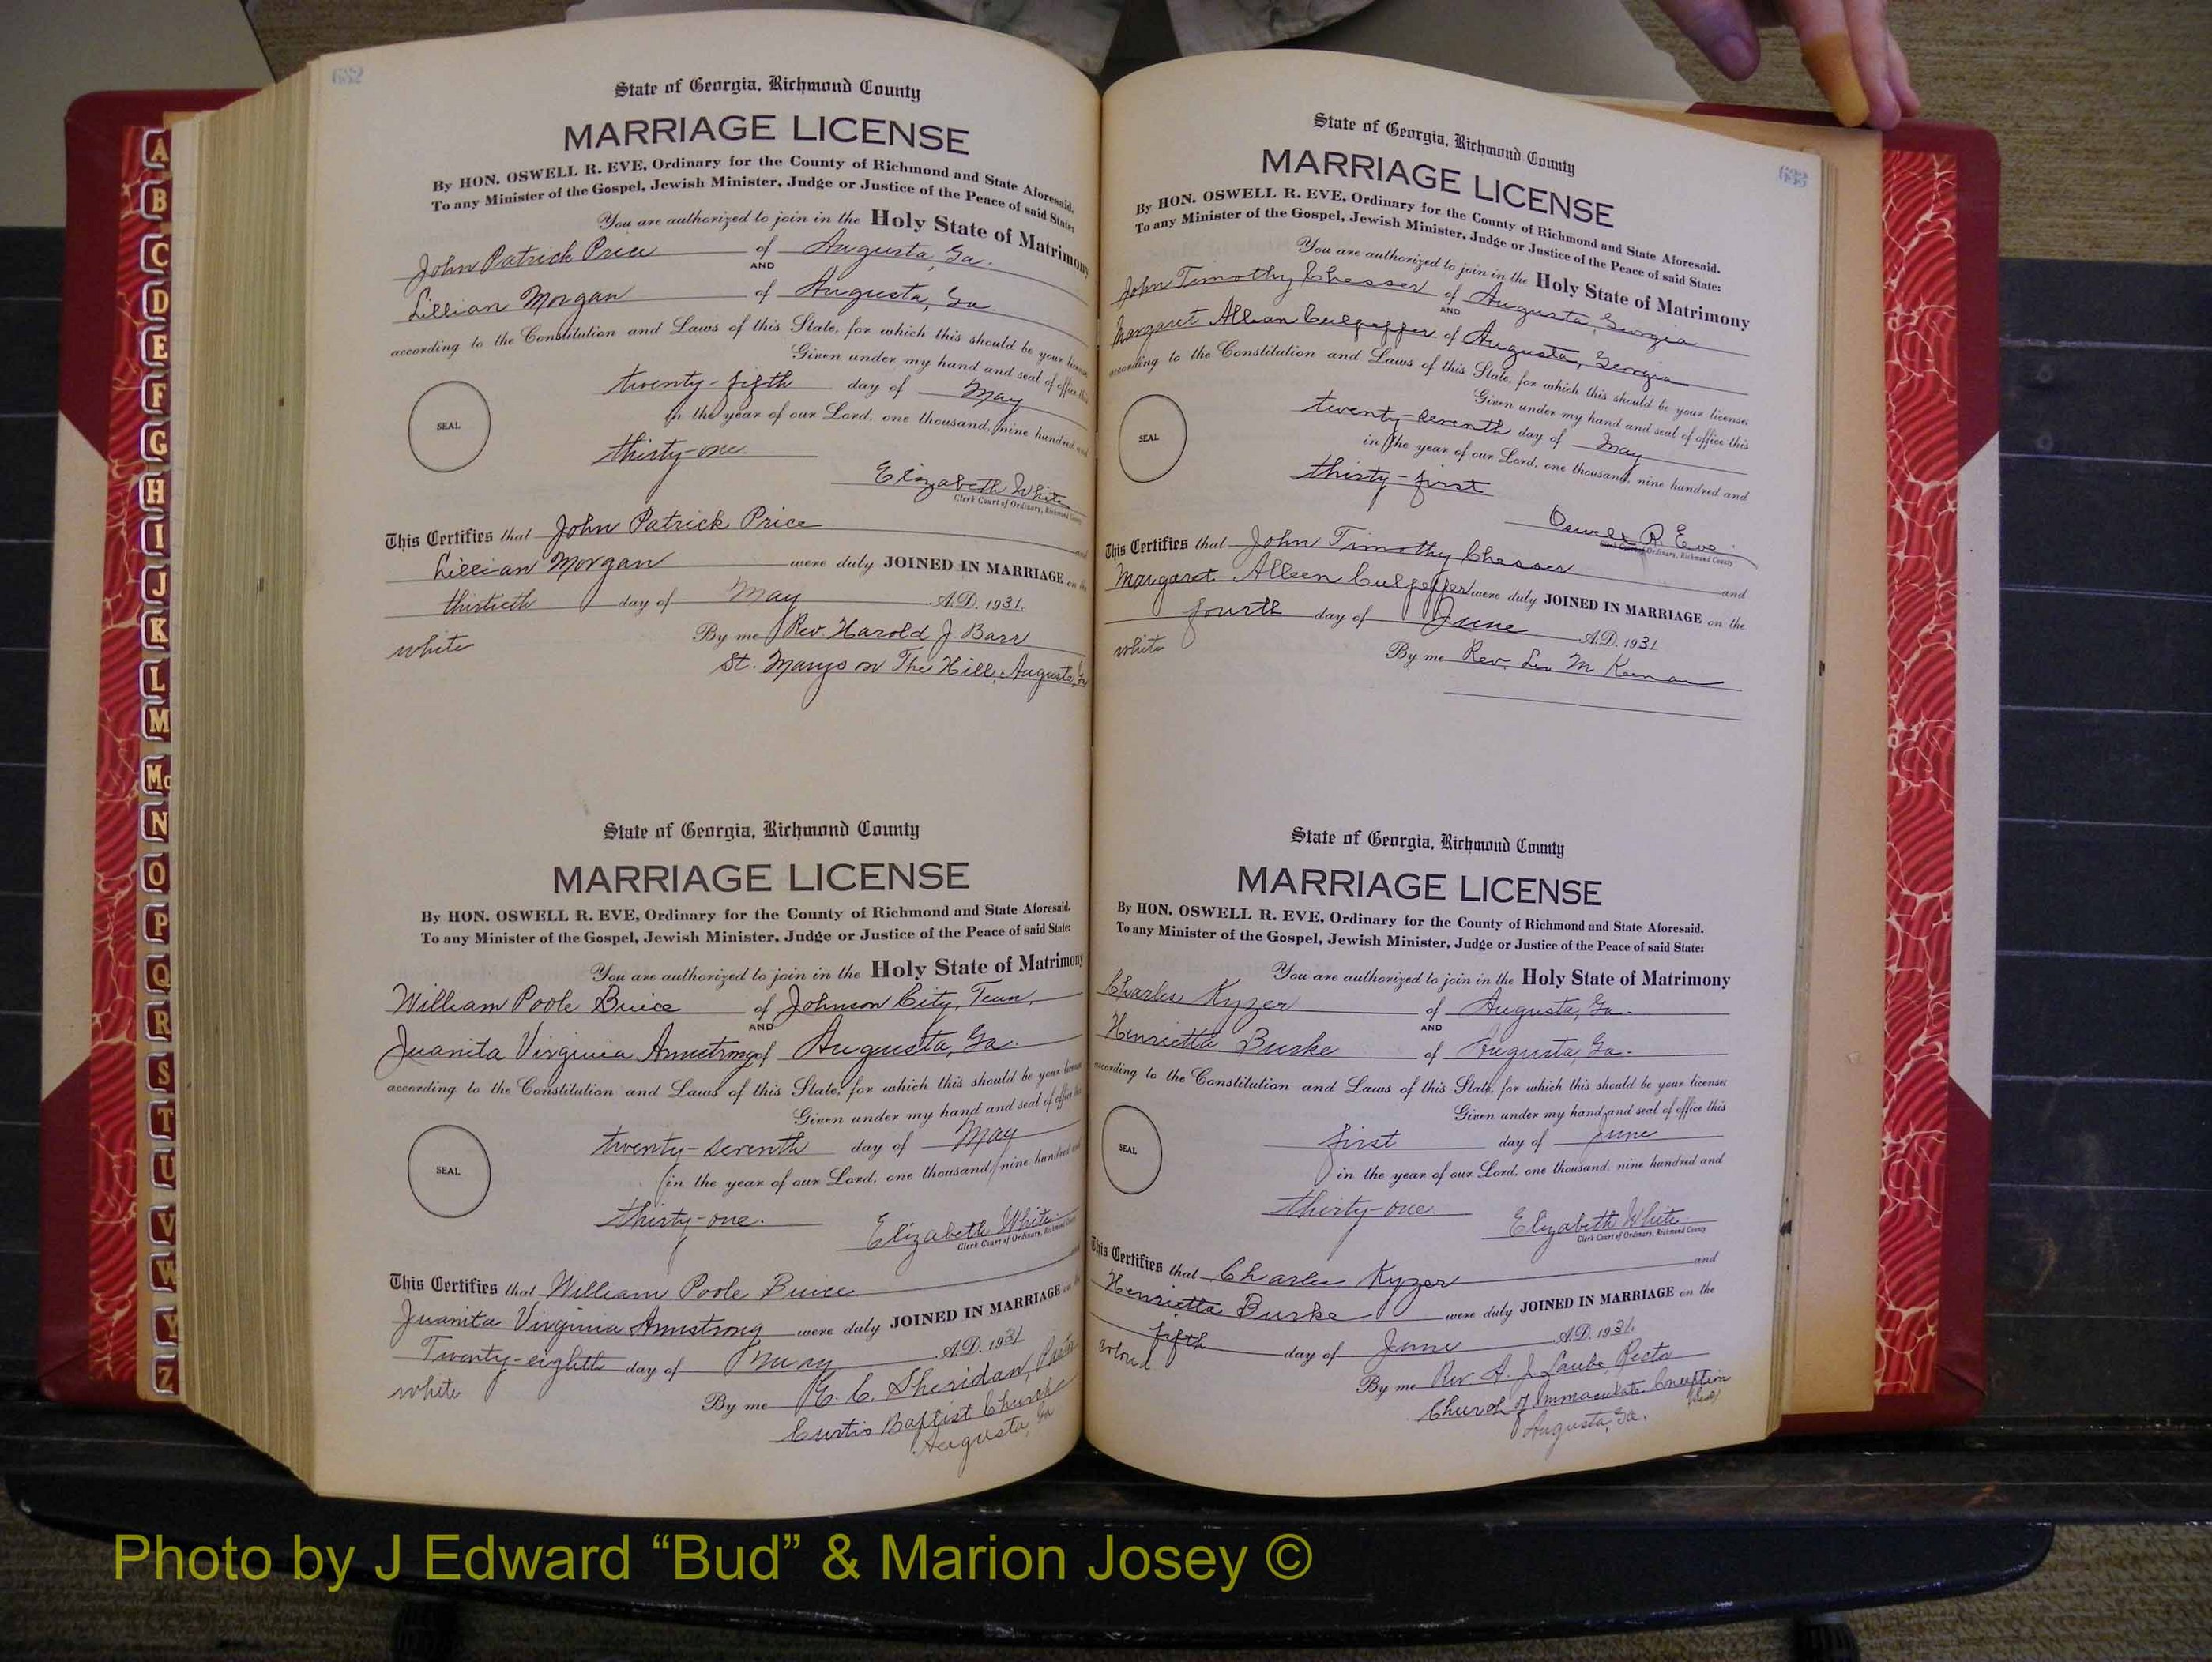 632
State of Georgia, Richmond County
MARRIAGE LICENSE
By HON. OSWELL R. EVE, Ordinary for the County of Richmond and State Aforesaid.
To any Minister of the Gospel, Jewish Minister, Judge or Justice of the Peace of said State:
You are authorized to join in the Holy State of Matrimony
John Patrick Price of Augusta, Ga.
AND
Lillian Morgan of Augusta, Ga.
according to the Constitution and Laws of this State, for which this should be your license
Given under my hand and seal of office this
twenty-fifth day of May
SEAL
in the year of our Lord, one thousand, nine hundred and
thirty-one
Elizabeth White
Clerk Court of Ordinary, Richmond County
This Certifies that John Patrick Price and
Lillian Morgan were duly JOINED IN MARRIAGE on the
thirtieth day of May A.D. 1931.
white By me Rev. Harold J. Barr
St. Marys on The Hill, Augusta, Ga
State of Georgia, Richmond County
MARRIAGE LICENSE
By HON. OSWELL R. EVE, Ordinary for the County of Richmond and State Aforesaid.
To any Minister of the Gospel, Jewish Minister, Judge or Justice of the Peace of said State:
You are authorized to join in the Holy State of Matrimony
William Poole Buice of Johnson City, Tenn.
AND
Juanita Virginia Armstrong of Augusta, Ga.
according to the Constitution and Laws of this State, for which this should be your license
Given under my hand and seal of office this
twenty-seventh day of May
SEAL
in the year of our Lord, one thousand, nine hundred and
thirty-one.
Elizabeth White
Clerk Court of Ordinary, Richmond County
This Certifies that William Poole Buice and
Juanita Virginia Armstrong were duly JOINED IN MARRIAGE on the
Twenty-eighth day of May A.D. 1931
white By me E. C. Sheridan, Pastor
Curtis Baptist Church
Augusta, Ga
633
State of Georgia, Richmond County
MARRIAGE LICENSE
By HON. OSWELL R. EVE, Ordinary for the County of Richmond and State Aforesaid.
To any Minister of the Gospel, Jewish Minister, Judge or Justice of the Peace of said State:
You are authorized to join in the Holy State of Matrimony
John Timothy Chesser of Augusta, Georgia
AND
Margaret Allean Culpepper of Augusta, Georgia
according to the Constitution and Laws of this State, for which this should be your license
Given under my hand and seal of office this
twenty-seventh day of May
SEAL
in the year of our Lord, one thousand, nine hundred and
thirty-first
Oswell R. Eve
Clerk Court of Ordinary, Richmond County
This Certifies that John Timothy Chesser and
Margaret Alleen Culpepper were duly JOINED IN MARRIAGE on the
fourth day of June A.D. 1931
white By me Rev. Leo M Keenan
State of Georgia, Richmond County
MARRIAGE LICENSE
By HON. OSWELL R. EVE, Ordinary for the County of Richmond and State Aforesaid.
To any Minister of the Gospel, Jewish Minister, Judge or Justice of the Peace of said State:
You are authorized to join in the Holy State of Matrimony
Charles Kyzer of Augusta, Ga.
AND
Henrietta Burke of Augusta, Ga.
according to the Constitution and Laws of this State, for which this should be your license
Given under my hand and seal of office this
first day of June
SEAL
in the year of our Lord, one thousand, nine hundred and
thirty-one
Elizabeth White
Clerk Court of Ordinary, Richmond County
This Certifies that Charles Kyzer and
Henrietta Burke were duly JOINED IN MARRIAGE on the
fifth day of June A.D. 1931.
Colored By me Rev. A. J. Laube Rector
Church of Immaculate Conception
Augusta, Ga.
A
B
C
D
E
F
G
H
I
J
K
L
M
Mc
N
O
P
Q
R
S
T
U
V
W
Y
Z
Photo by J Edward “Bud” & Marion Josey ©